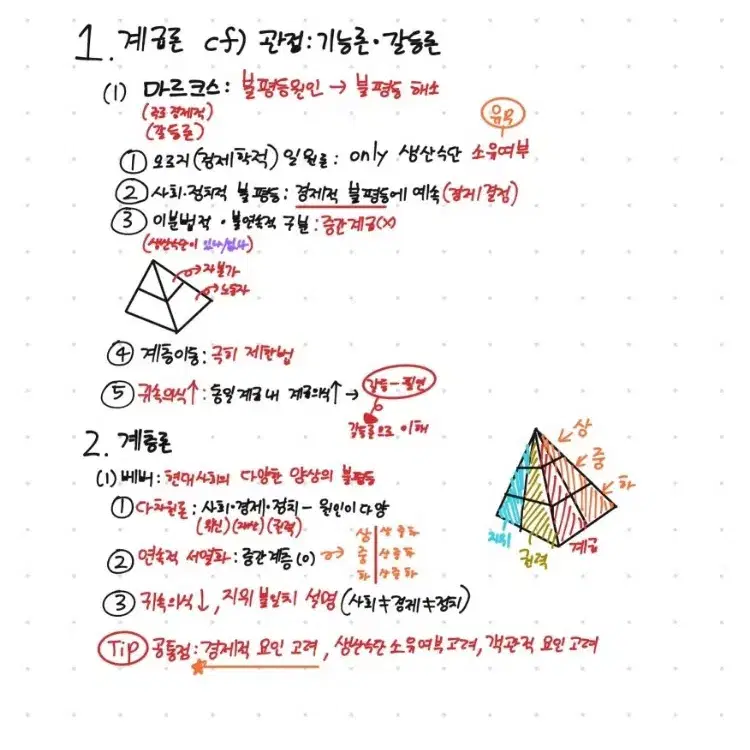 1. 계급론 cf) 관점: 기능론·갈등론
(1) 마르크스: 불평등원인 → 불평등 해소
(갈등론)
유무
① 오로지(경제학적) 일원론: only 생산수단 소유여부
② 사회·정치적 불평등: 경제적 불평등에 예속(경제결정)
③ 이분법적·불연속적 구분: 중간계급(X)
(생산수단이 있나/없나)
자본가
노동자
④ 계층이동: 극히 제한법
⑤ 귀속의식↑: 동일계급 내 계급의식↑ → 갈등-필연
갈등론으로 이해
2. 계층론
(1) 베버: 현대사회의 다양한 양상의 불평등
① 다차원론: 사회·경제·정치 - 원인이 다양
(위신)(재산)(권력)
② 연속적 서열화: 중간계층(O) →
상 상중하
중 상중하
하 상중하
상
중
하
지위
권력
계급
③ 귀속의식↓, 지위 불일치 설명 (사회≠경제≠정치)
Tip 공통점: 경제적 요인 고려, 생산수단 소유여부 고려, 객관적 요인 고려